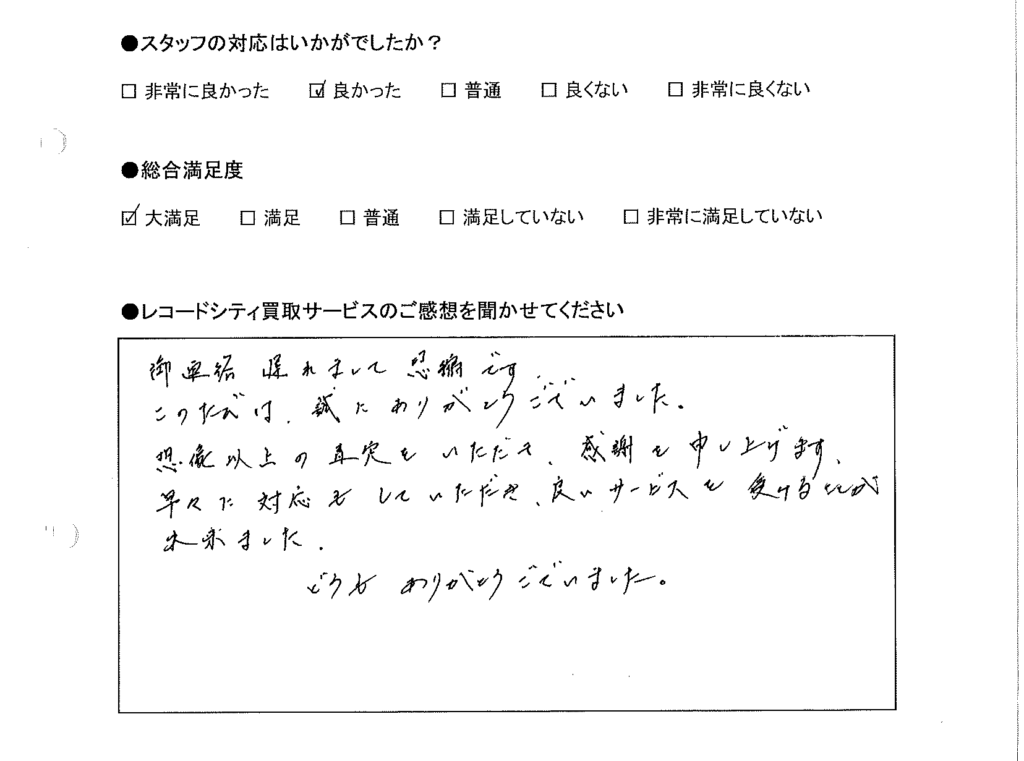 ●スタッフの対応はいかがでしたか？
□ 非常に良かった ☑ 良かった □ 普通 □ 良くない □ 非常に良くない
●総合満足度
☑ 大満足 □ 満足 □ 普通 □ 満足していない □ 非常に満足していない
●レコードシティ買取サービスのご感想を聞かせてください
御連絡 遅れまして 恐縮です.
このたびは、誠にありがとうございました。
想像以上の査定をいただき、感謝を申し上げます、
早々に対応をしていただき、良いサービスを受ける事が
出来ました.
どうも ありがとうございました。